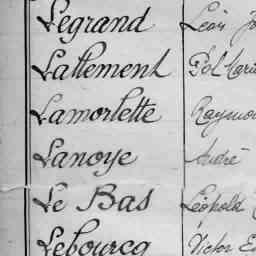 Legrand Léon
Lallement Pol Marie
Lamorlette Raymond
Lanoye André
Le Bas Léopold
Lebourcq Victor